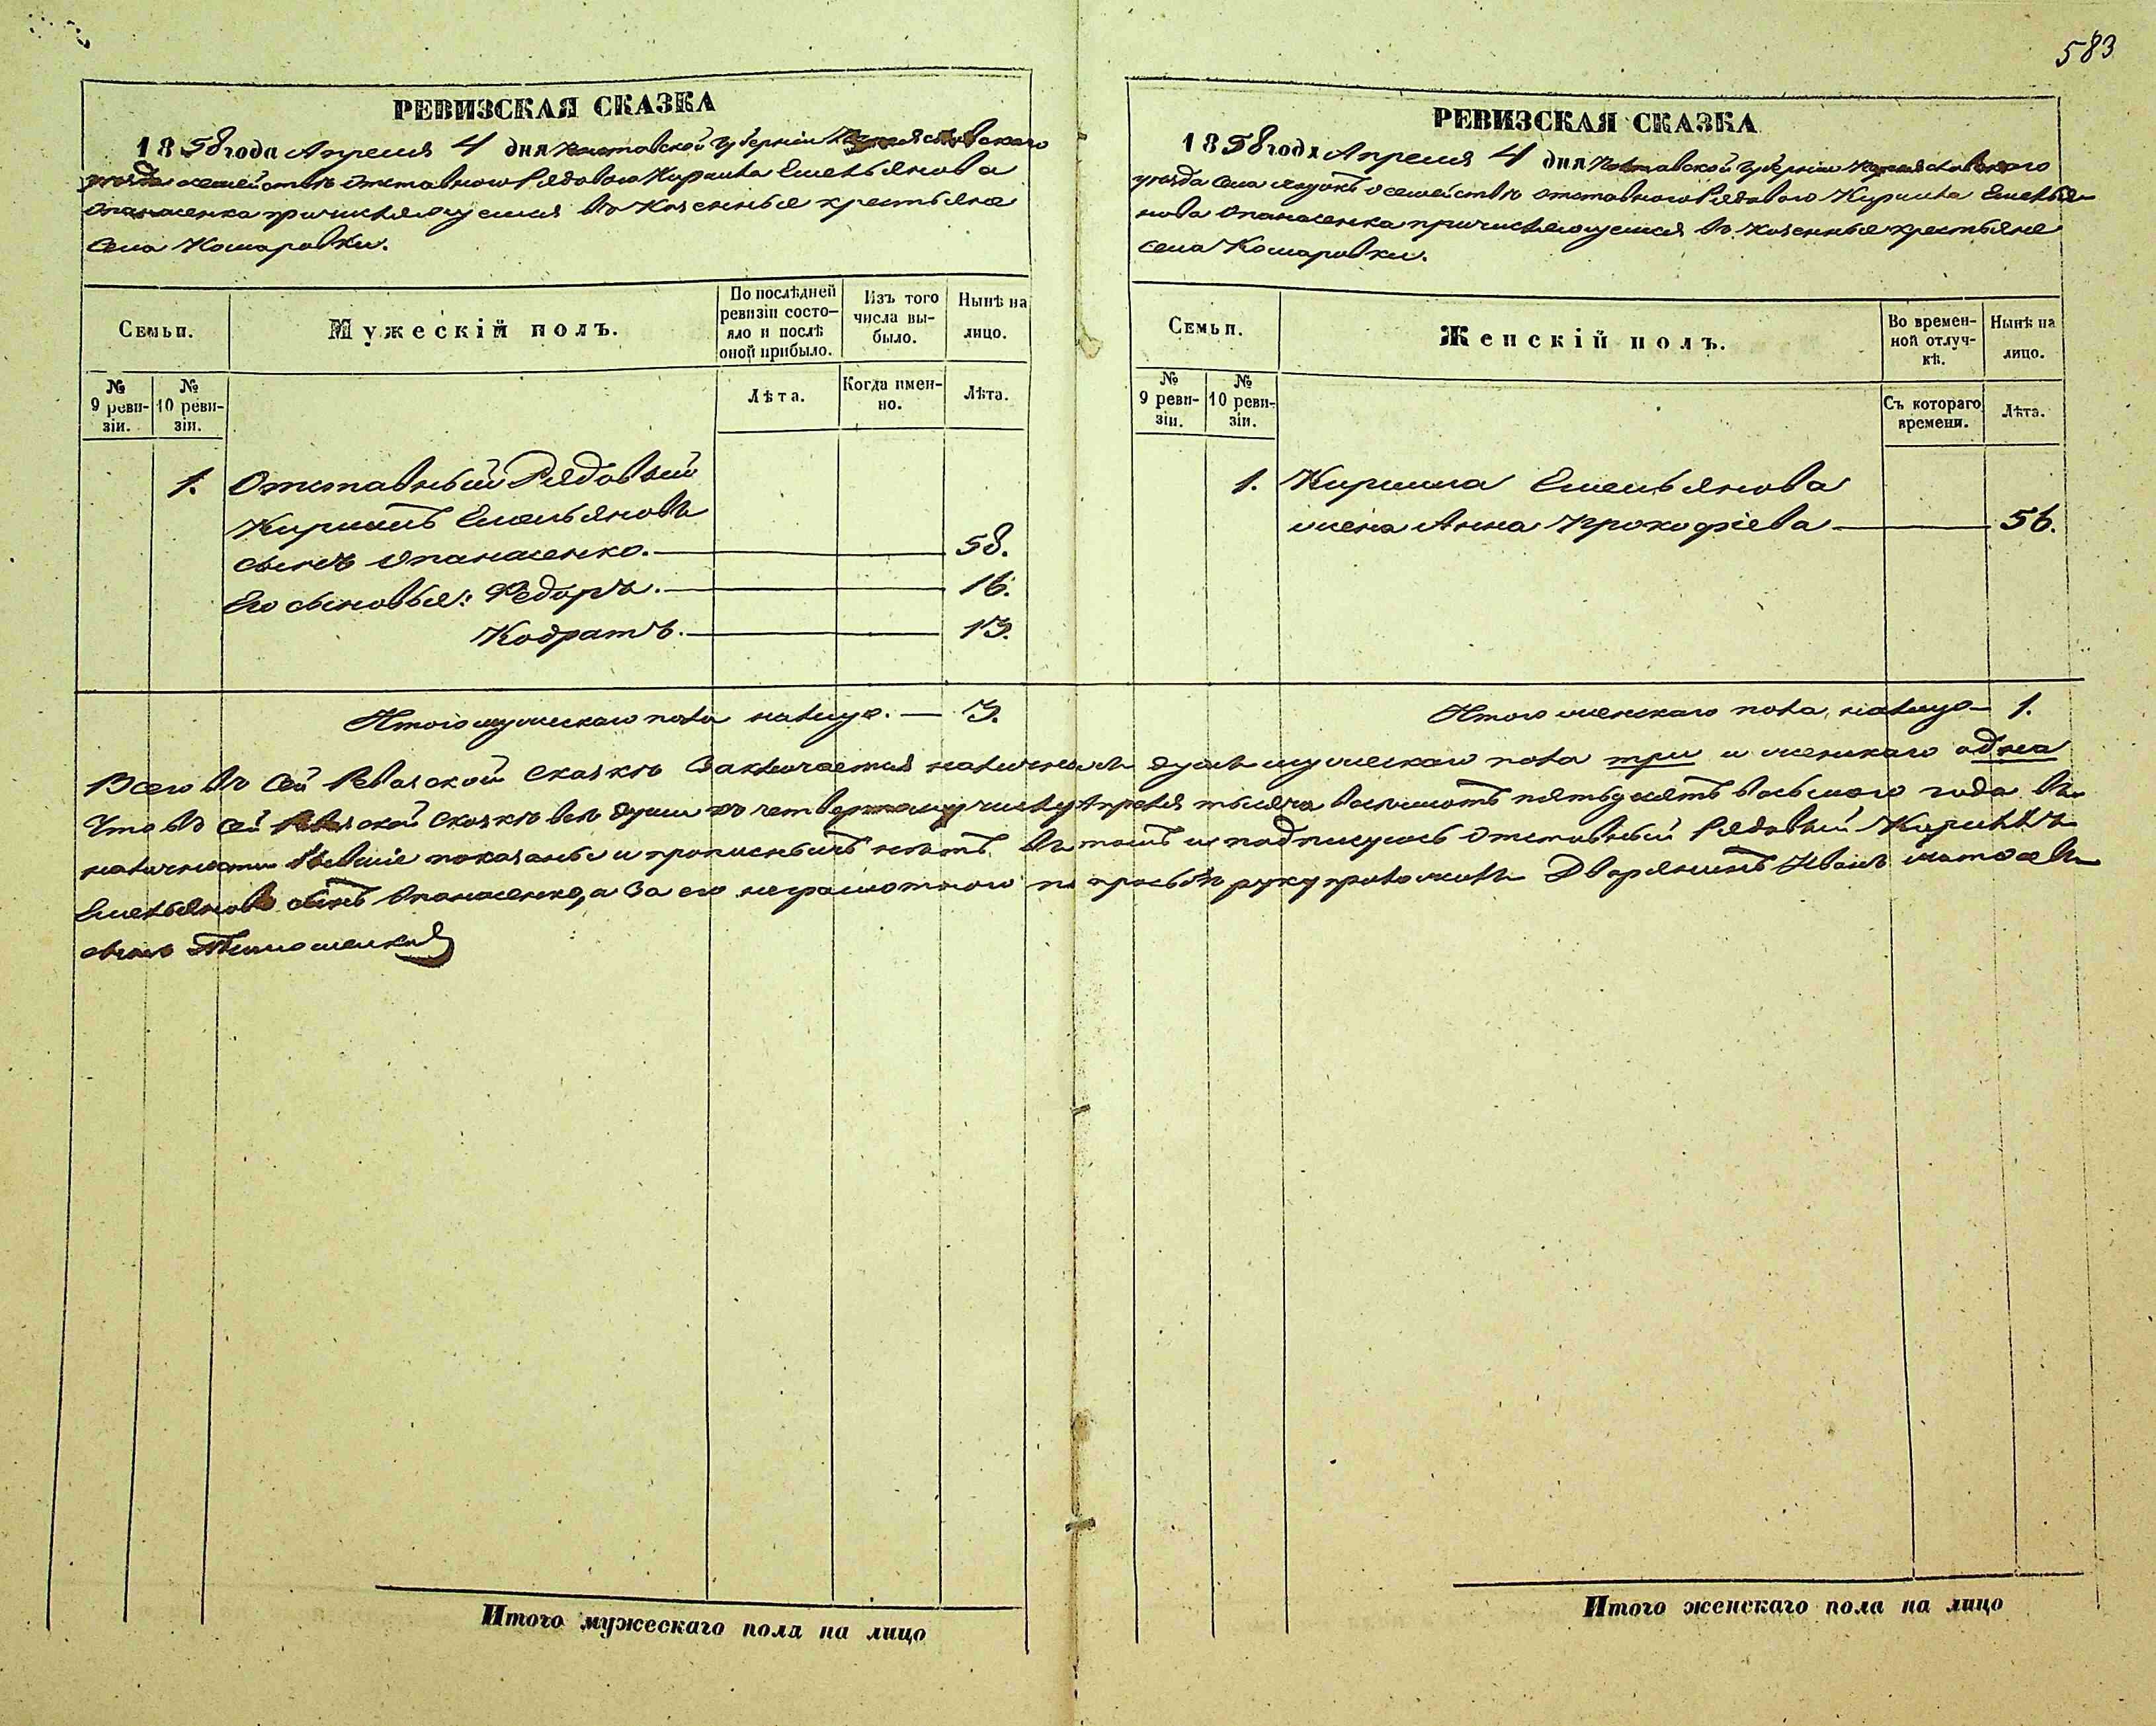 583
РЕВИЗСКАЯ СКАЗКА
1858 года Апреля 4 дня Полтавской губерніи
уезда о семействѣ Отставного Рядового Кирилла Емельянова
Опанасенка причисляющемся въ Казенные крестьяне
села Комаровки.
Семьи.
Мужескій полъ.
По послѣдней ревизіи состо-
яло и послѣ
оной прибыло.
Изъ того
числа вы-
было.
Нынѣ на
лицо.
№
9 реви-
зіи.
№
10 реви-
зіи.
Лѣта.
Когда имен-
но.
Лѣта.
1. Отставный Рядовый
Кириллъ Емельяновъ
сынъ Опанасенко. 58.
Его сыновья: Федоръ. 16.
Кодратъ. 13.
Итого мужескаго пола налицо. — 3.
РЕВИЗСКАЯ СКАЗКА
1858 года Апреля 4 дня Полтавской губерніи
уезда села о семействѣ отставного Рядового Кирилла Емелья-
нова Опанасенка причисляющемся въ казенные крестьяне
села Комаровки.
Семьи.
Женскій полъ.
Во времен-
ной отлуч-
кѣ.
Нынѣ на
лицо.
№
9 реви-
зіи.
№
10 реви-
зіи.
Съ котораго
времени.
Лѣта.
1. Кирилла Емельянова
жена Анна Прокофіева 56.
Итого женскаго пола налицо — 1.
Всего въ сей Ревизской сказкѣ заключается наличныхъ душъ мужескаго пола три и женскаго одна
Что въ сей Ревизской сказкѣ все души по четвертому числу Апреля тысяча восемьсотъ пятьдесятъ восьмого года въ
наличности бывшіе показаны и прописныхъ нѣтъ, въ томъ и подписуюсь Отставный Рядовый Кириллъ
Емельяновъ сынъ Опанасенко, а за его неграмотного по просьбѣ руку приложилъ Дворянинъ Иванъ
сынъ
Итого мужескаго пола на лицо
Итого женскаго пола на лицо